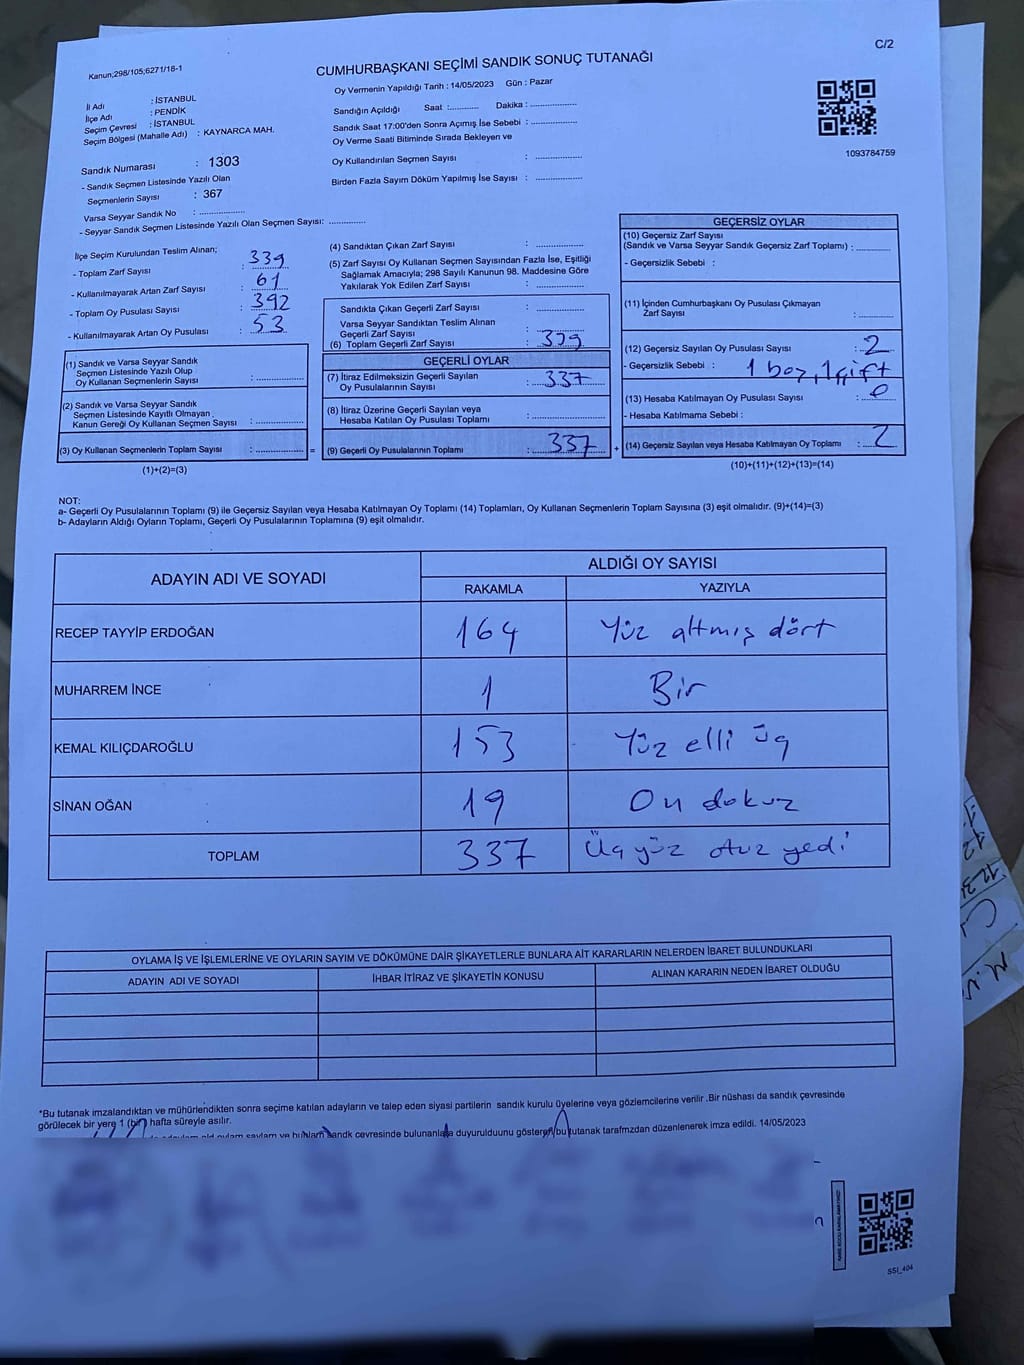 C/2
Kanun;298/105;6271/16-1
CUMHURBAŞKANI SEÇİMİ SANDIK SONUÇ TUTANAĞI
İl Adı : İSTANBUL
İlçe Adı : PENDİK
Seçim Çevresi : İSTANBUL
Seçim Bölgesi (Mahalle Adı) : KAYNARCA MAH.
Sandık Numarası : 1303
- Sandık Seçmen Listesinde Yazılı Olan
Seçmenlerin Sayısı : 367
Varsa Seyyar Sandık No : ..............
- Seyyar Sandık Seçmen Listesinde Yazılı Olan Seçmen Sayısı: ..............
Oy Vermenin Yapıldığı Tarih : 14/05/2023 Gün : Pazar
Sandığın Açıldığı Saat :........... Dakika : ..............
Sandık Saat 17:00'den Sonra Açımış İse Sebebi : ..............
Oy Verme Saati Bitiminde Sırada Bekleyen ve
Oy Kullandırılan Seçmen Sayısı : ..............
Birden Fazla Sayım Döküm Yapılmış İse Sayısı : ..............
1093784759
İlçe Seçim Kurulundan Teslim Alınan;
- Toplam Zarf Sayısı : 339
- Kullanılmayarak Artan Zarf Sayısı : 61
- Toplam Oy Pusulası Sayısı : 392
- Kullanılmayarak Artan Oy Pusulası : 53
(1) Sandık ve Varsa Seyyar Sandık
Seçmen Listesinde Yazılı Olup
Oy Kullanan Seçmenlerin Sayısı : ..............
(2) Sandık ve Varsa Seyyar Sandık
Seçmen Listesinde Kayıtlı Olmayan
Kanun Gereği Oy Kullanan Seçmen Sayısı : ..............
(3) Oy Kullanan Seçmenlerin Toplam Sayısı : .............. =
(1)+(2)=(3)
(4) Sandıktan Çıkan Zarf Sayısı : ..............
(5) Zarf Sayısı Oy Kullanan Seçmen Sayısından Fazla İse, Eşitliği
Sağlamak Amacıyla; 298 Sayılı Kanunun 98. Maddesine Göre
Yakılarak Yok Edilen Zarf Sayısı : ..............
Sandıkta Çıkan Geçerli Zarf Sayısı : ..............
Varsa Seyyar Sandıktan Teslim Alınan
Geçerli Zarf Sayısı : ..............
(6) Toplam Geçerli Zarf Sayısı : 339
GEÇERLİ OYLAR
(7) İtiraz Edilmeksizin Geçerli Sayılan
Oy Pusulasının Sayısı : 337
(8) İtiraz Üzerine Geçerli Sayılan veya
Hesaba Katılan Oy Pusulası Toplamı : ..............
(9) Geçerli Oy Pusulalarının Toplamı : 337 +
GEÇERSİZ OYLAR
(10) Geçersiz Zarf Sayısı
(Sandık ve Varsa Seyyar Sandık Geçersiz Zarf Toplamı) : ..............
- Geçersizlik Sebebi :
(11) İçinden Cumhurbaşkanı Oy Pusulası Çıkmayan
Zarf Sayısı : ..............
(12) Geçersiz Sayılan Oy Pusulası Sayısı : 2
- Geçersizlik Sebebi : 1 boş, 1 çift
(13) Hesaba Katılmayan Oy Pusulası Sayısı :
- Hesaba Katılmama Sebebi :
(14) Geçersiz Sayılan veya Hesaba Katılmayan Oy Toplamı : 2
(10)+(11)+(12)+(13)=(14)
NOT:
a- Geçerli Oy Pusulalarının Toplamı (9) ile Geçersiz Sayılan veya Hesaba Katılmayan Oy Toplamı (14) Toplamları, Oy Kullanan Seçmenlerin Toplam Sayısına (3) eşit olmalıdır. (9)+(14)=(3)
b- Adayların Aldığı Oyların Toplamı, Geçerli Oy Pusulalarının Toplamına (9) eşit olmalıdır.
ADAYIN ADI VE SOYADI ALDIĞI OY SAYISI
RAKAMLA YAZIYLA
RECEP TAYYİP ERDOĞAN 164 Yüz altmış dört
MUHARREM İNCE 1 Bir
KEMAL KILIÇDAROĞLU 153 Yüz elli üç
SİNAN OĞAN 19 On dokuz
TOPLAM 337 Üçyüz otuz yedi
OYLAMA İŞ VE İŞLEMLERİNE VE OYLARIN SAYIM VE DÖKÜMÜNE DAİR ŞİKAYETLERLE BUNLARA AİT KARARLARIN NELERDEN İBARET BULUNDUKLARI
ADAYIN ADI VE SOYADI İHBAR İTİRAZ VE ŞİKAYETİN KONUSU ALINAN KARARIN NEDEN İBARET OLDUĞU
*Bu tutanak imzalandıktan ve mühürlendikten sonra seçime katılan adayların ve talep eden siyasi partilerin sandık kurulu üyelerine veya gözlemcilerine verilir .Bir nüshası da sandık çevresinde
görülecek bir yere 1 (bir) hafta süreyle asılır.
sandık çevresinde bulunanlara duyurulduunu gösteren bu tutanak tarafmzdan düzenlenerek imza edildi. 14/05/2023
SSI_404